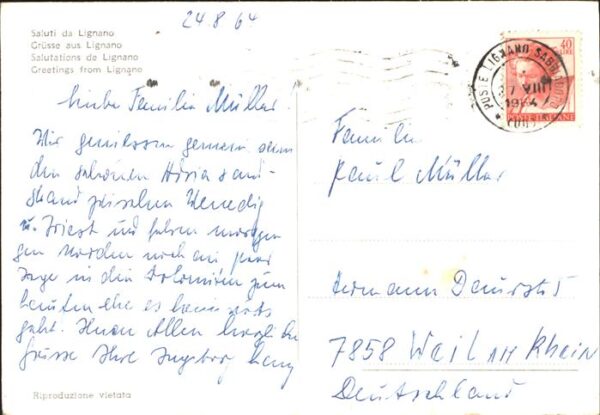 24.8.64
Saluti da Lignano
Grüsse aus Lignano
Salutations de Lignano
Greetings from Lignano
Liebe Familie Müller!
Wir geniessen gemeinsam
den schönen Adria Sand-
strand zwischen Venedig
u. Triest und fahren morgen
gen Norden noch ein paar
Tage in die Dolomiten zum
laufen ehe es heimwärts
geht. Ihnen Allen herzliche
Grüsse Ihre Ingeborg
Riproduzione vietata
40
LIRE
POSTE ITALIANE
POSTE LIGNANO SABBIADORO
VIII
1964
Familie
Paul Müller
Hermann 5
7858 Weil am Rhein
Deutschland